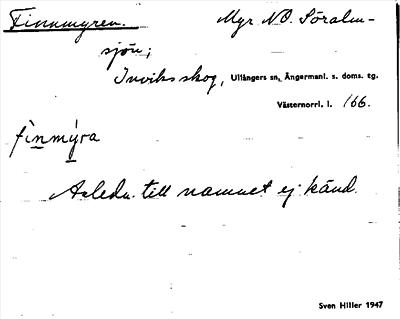 Finnmyren. Myr NO. Söralm-
sjön;
Inviksskog, Ullångers sn, Ångermanl. s. doms. tg.
Västernorrl. l. 166.
finmýra
Anledn. till namnet ej känd.
Sven Hiller 1947